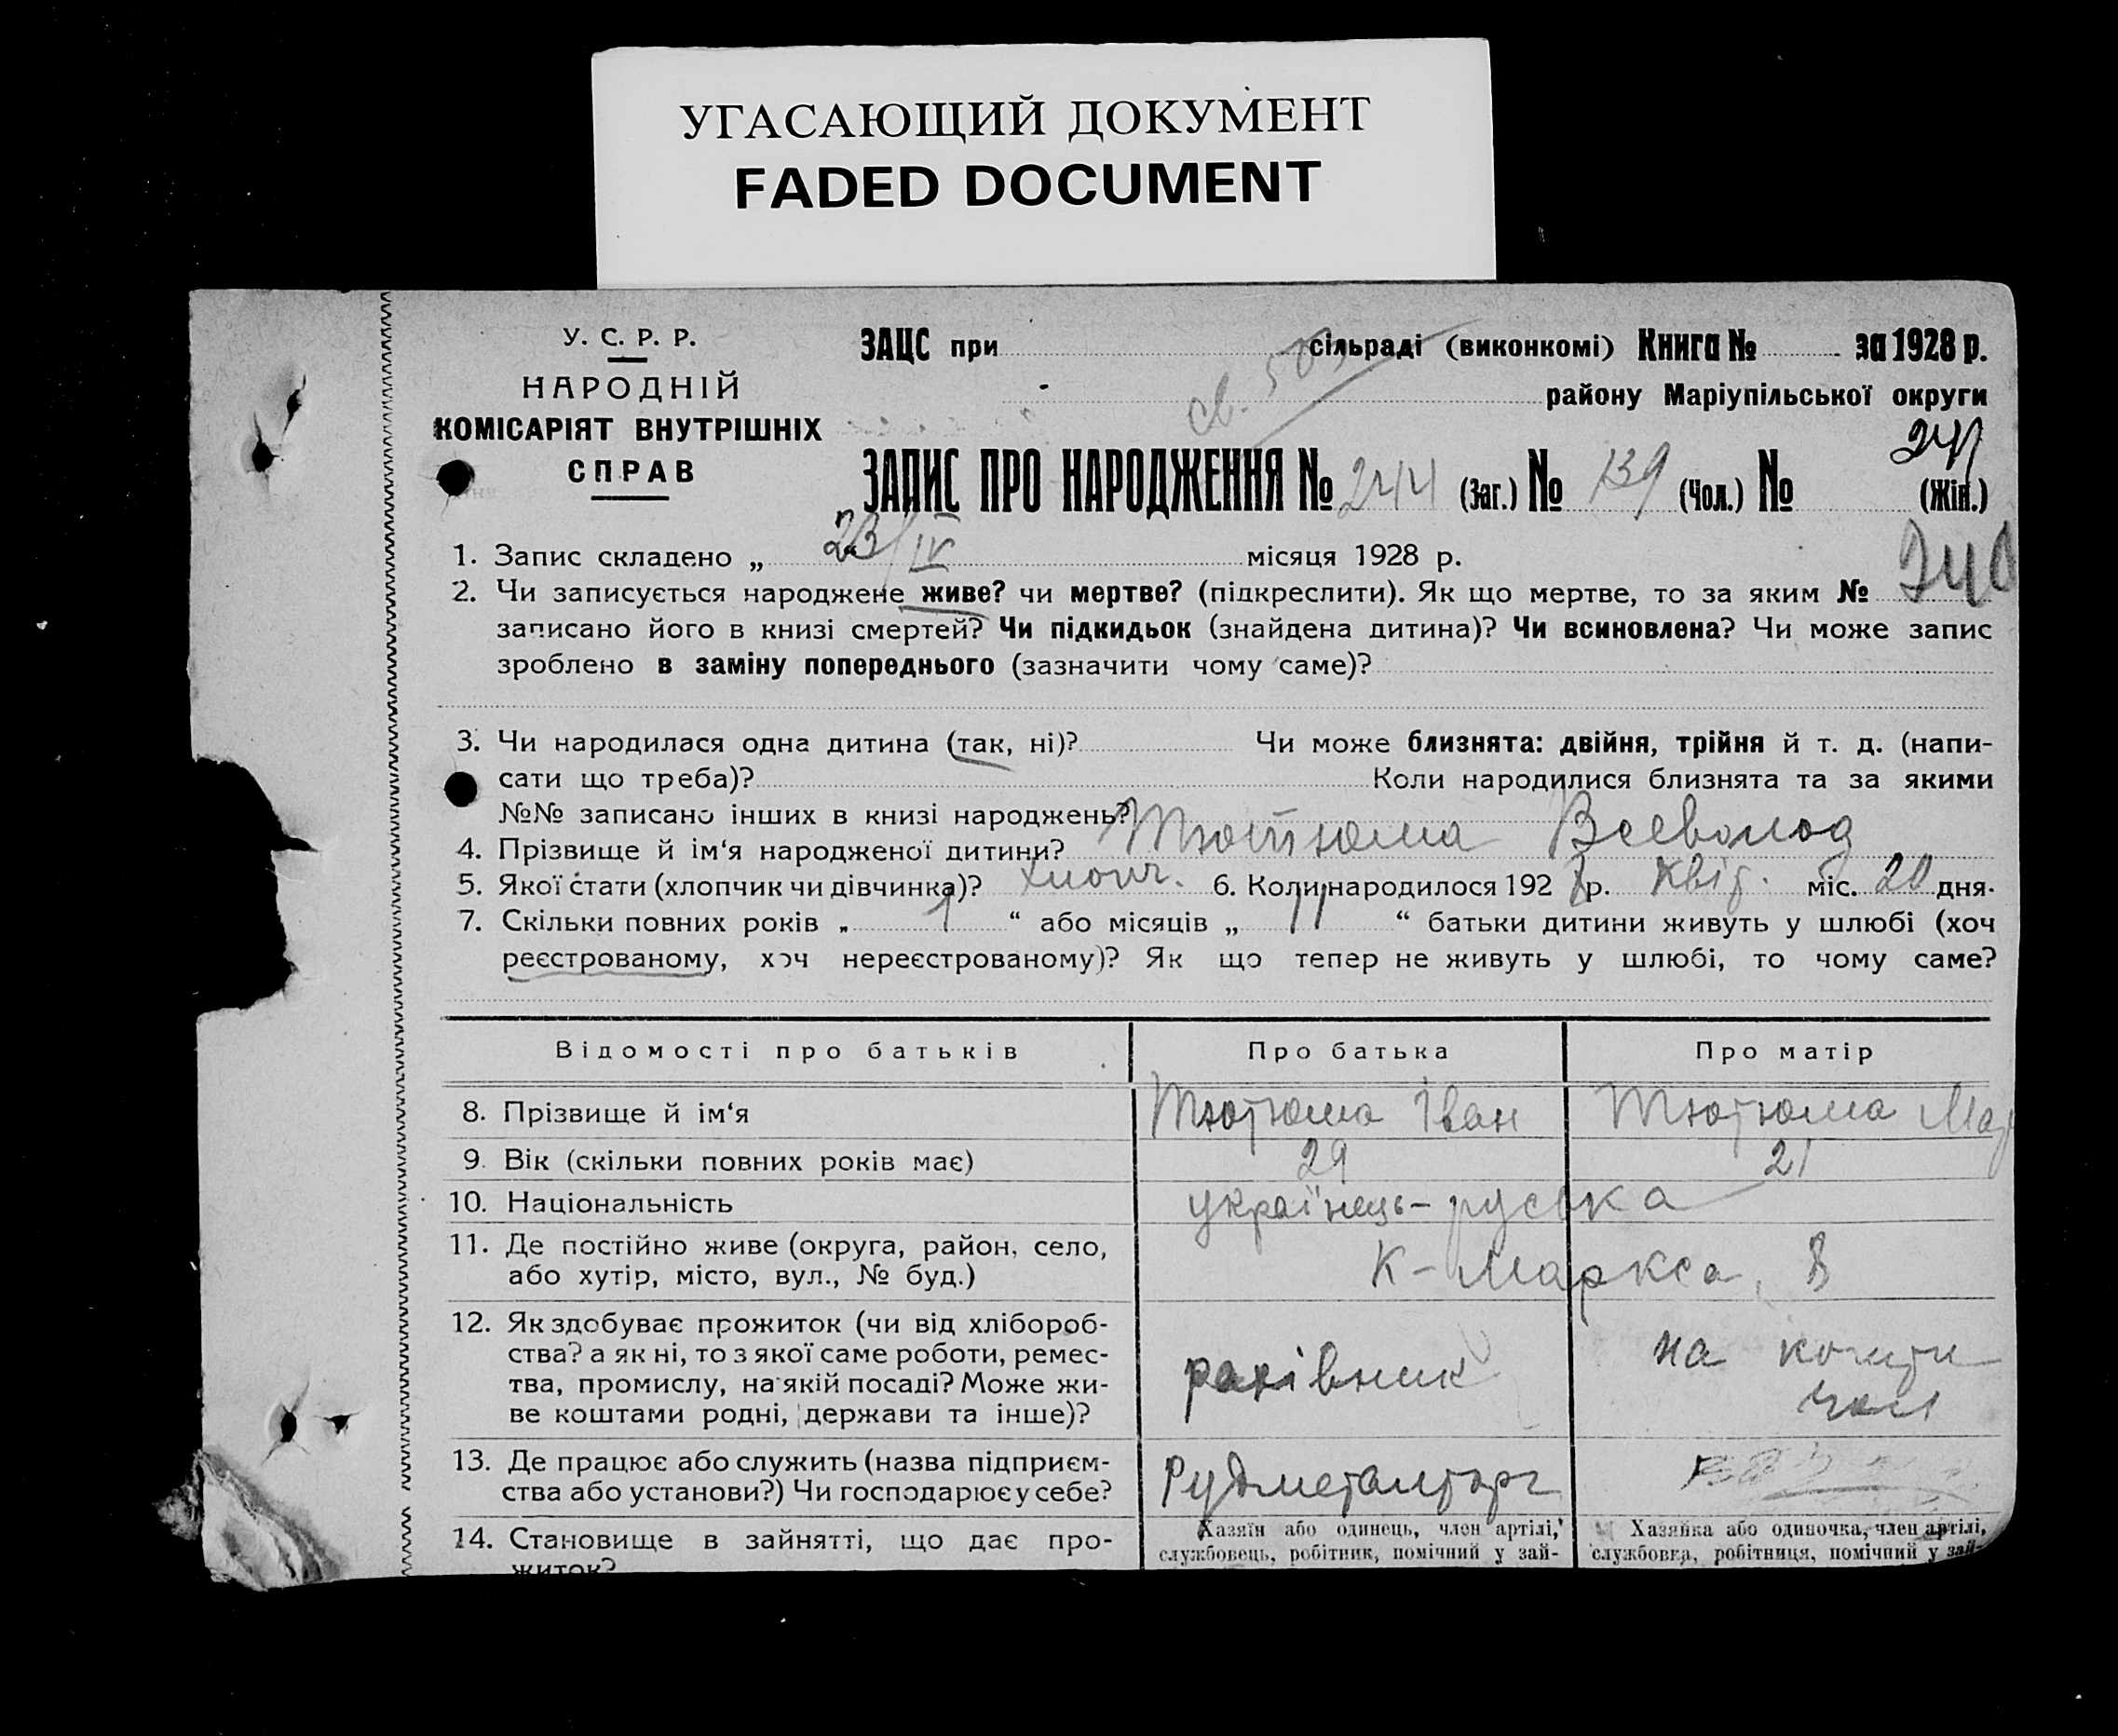 УГАСАЮЩИЙ ДОКУМЕНТ
FADED DOCUMENT
У. С. Р. Р.
НАРОДНІЙ
КОМІСАРІЯТ ВНУТРІШНІХ
СПРАВ
ЗАЦС при сільраді (виконкомі) Книга № за 1928 р.
району Маріупільської округи
ЗАПИС ПРО НАРОДЖЕННЯ № 244 (Заг.) № 139 (Чол.) № (Жін.)
1. Запис складено „ 23/IV місяця 1928 р.
2. Чи записується народжене живе? чи мертве? (підкреслити). Як що мертве, то за яким №
записано його в книзі смертей? Чи підкидьок (знайдена дитина)? Чи всиновлена? Чи може запис
зроблено в заміну попереднього (зазначити чому саме)?
3. Чи народилася одна дитина (так, ні)? Чи може близнята: двійня, трійня й т. д. (напи-
сати що треба)? Коли народилися близнята та за якими
№№ записано інших в книзі народжень?
4. Прізвище й ім‘я народженої дитини? Тютюма Всеволод
5. Якої стати (хлопчик чи дівчинка)? хлопч. 6. Коли народилося 192 8 р. Квіт. міс. 20 дня.
7. Скільки повних років „ 1 “ або місяців „ 11 “ батьки дитини живуть у шлюбі (хоч
реєстрованому, хоч нереєстрованому)? Як що тепер не живуть у шлюбі, то чому саме?
Відомості про батьків Про батька Про матір
8. Прізвище й ім‘я Тютюма Іван Тютюма
9. Вік (скільки повних років має) 29 21
10. Національність українець - руська
11. Де постійно живе (округа, район, село,
або хутір, місто, вул., № буд.) К-Маркса, 8
12. Як здобуває прожиток (чи від хлібороб-
ства? а як ні, то з якої саме роботи, ремес-
тва, промислу, на якій посаді? Може жи-
ве коштами родні, держави та інше)?
рахівник
на кошти
чол
13. Де працює або служить (назва підприєм-
ства або установи?) Чи господарює у себе?
Рудметалторг
14. Становище в зайнятті, що дає про-
житок?
Хазяїн або одинець, член артілі,
службовець, робітник, помічний у зай-
Хазяйка або одиночка, член артілі,
службовка, робітниця, помічний у зай-